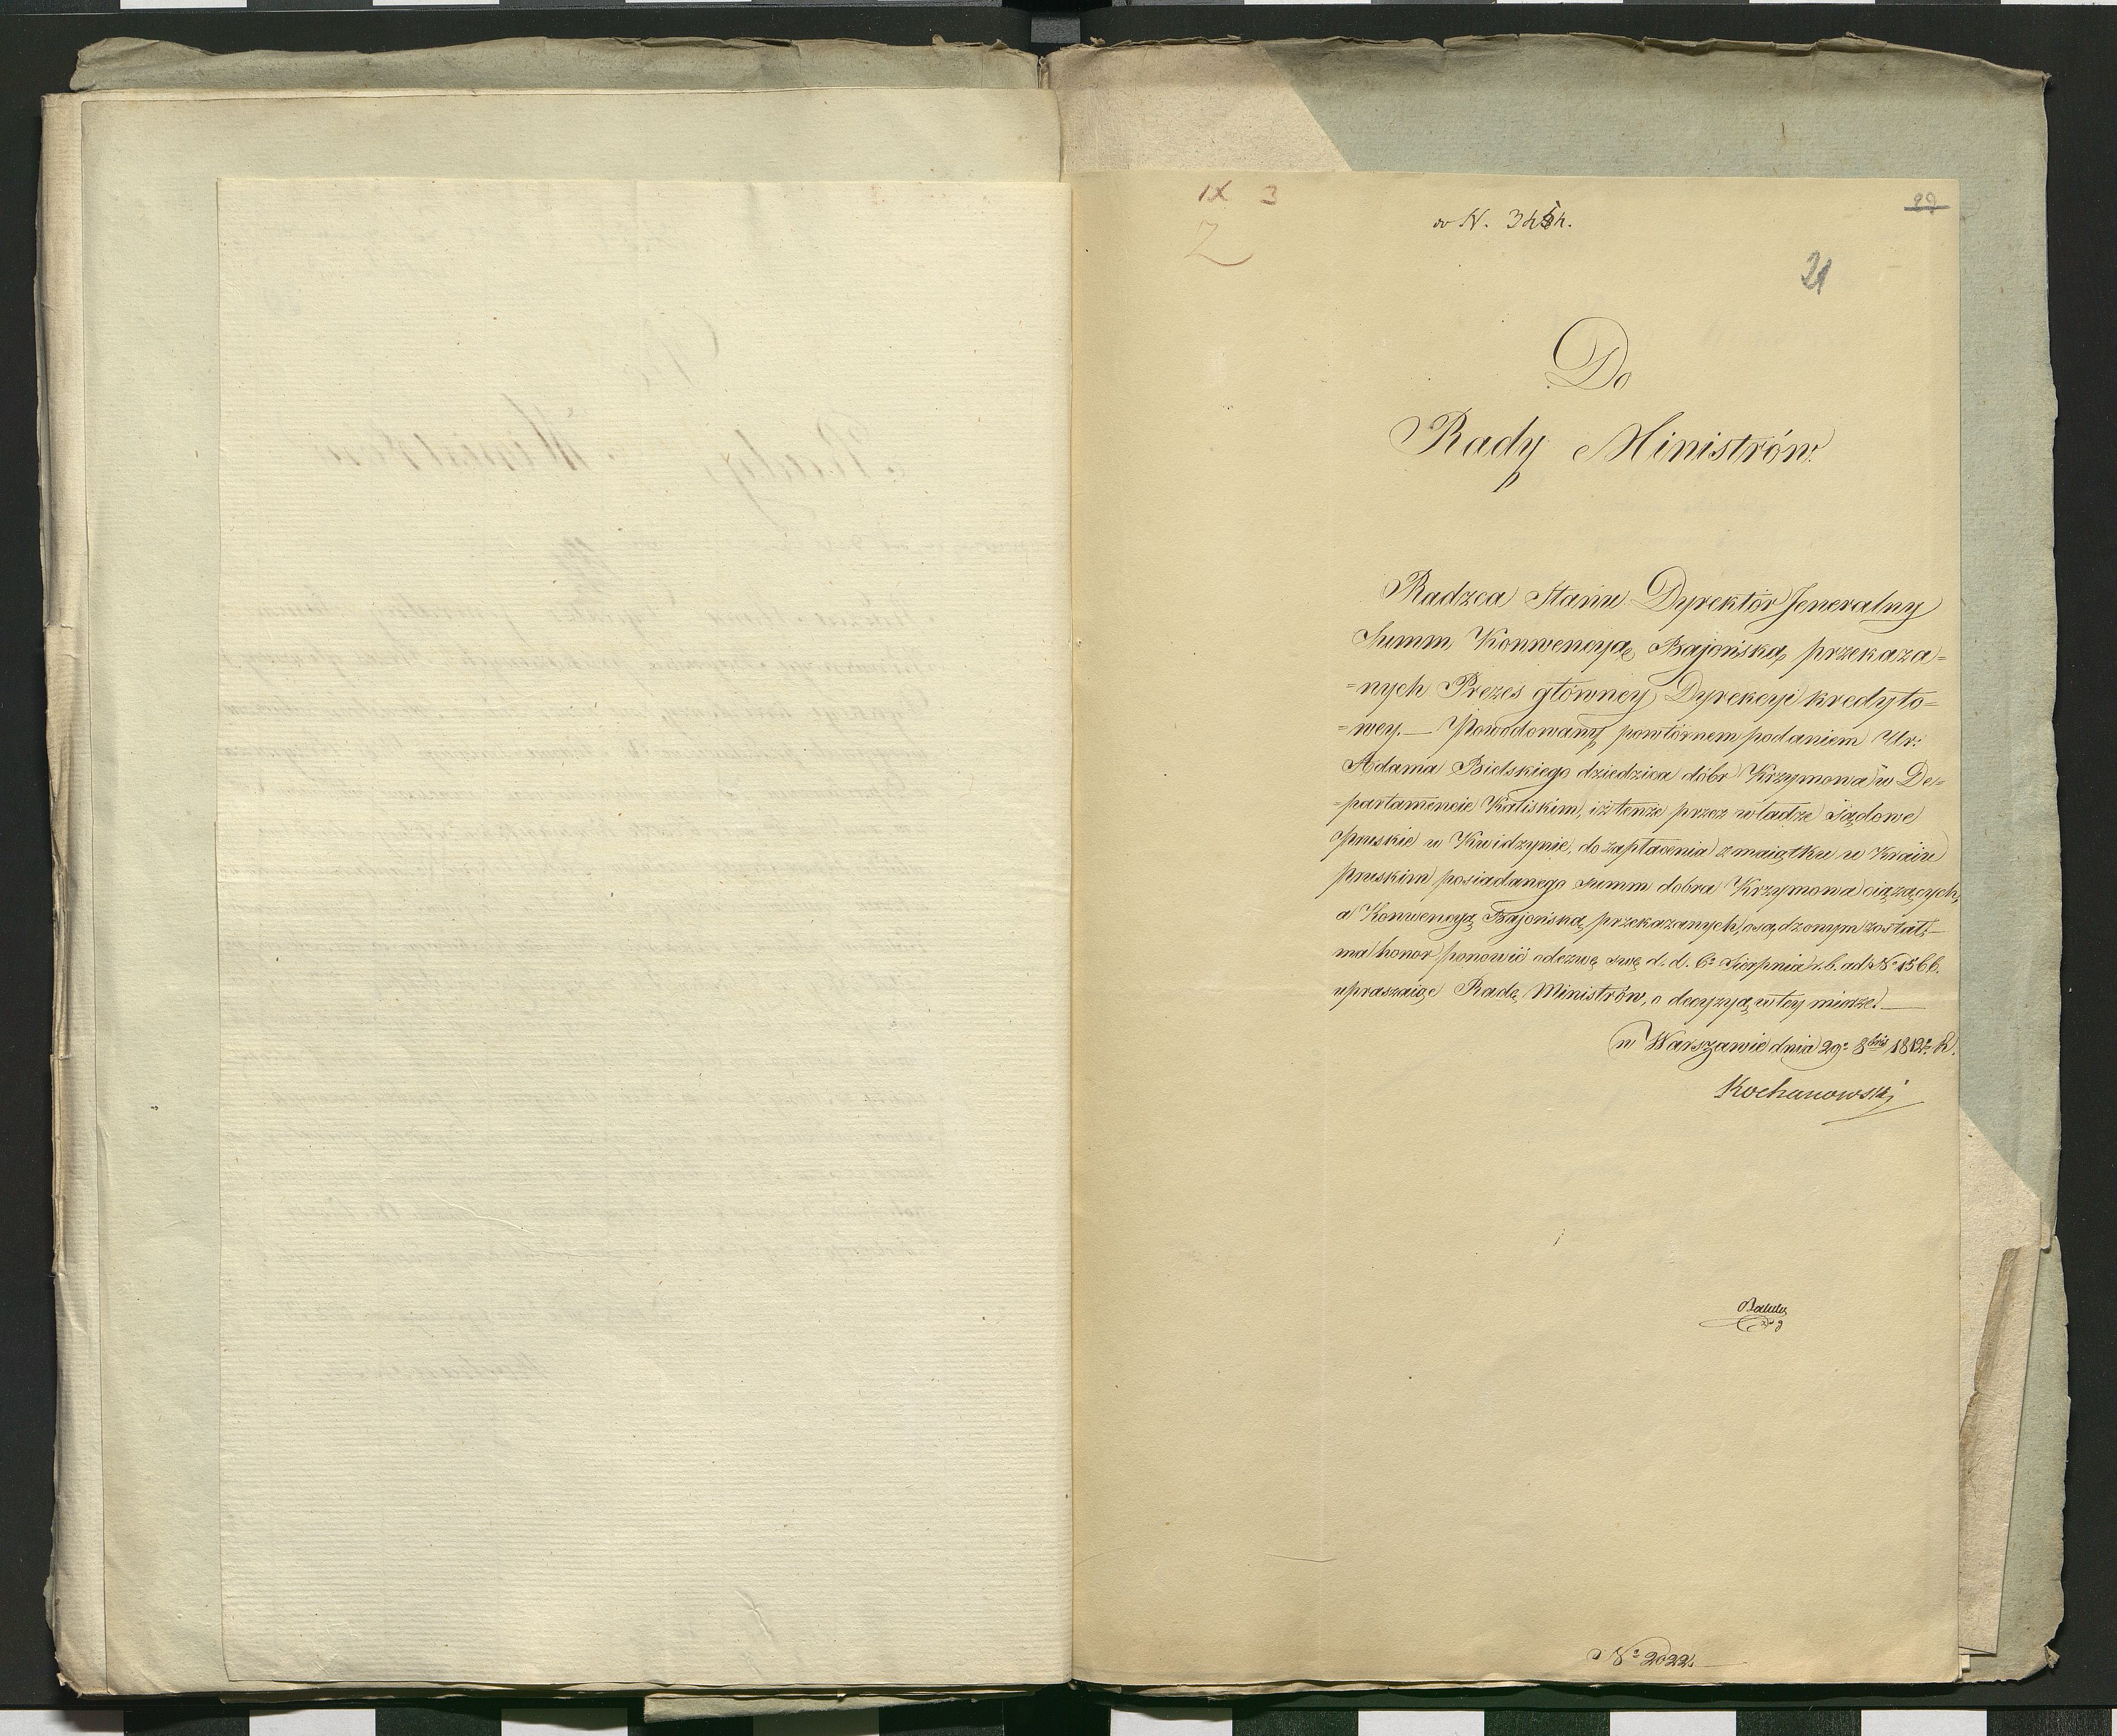 IX 3
2
N. 3454.
22
21
Do
Rady Ministrów
Radzca Stanu Dyrektór Jeneralny
Summ Konwencyą Bajońską przekaza=
=nych Prezes główney Dyrekcyi kredyto=
=wey.— Powodowany powtórnem podaniem Ur:
Adama Bielskiego dziedzica dóbr Krzymowa w De=
=partamencie Kaliskim, iż tenże przez władze Sądowe
Pruskie w Kwidzynie, do zapłacenia z maiątku w Kraiu
pruskim posiadanego summ dobra Krzymowa ciążących,
a Konwencyą Bajońską przekazanych, osądzonym został,—
ma honor ponowić odezwę swę d. d. 6º Sierpnia r. b. ad Nº 1566.
upraszaiąc Radę Ministrów, o decyzyą w tey mierze.—
w Warszawie dnia 29º 8bris 1812º R.
Kochanowski
Nº 2022.